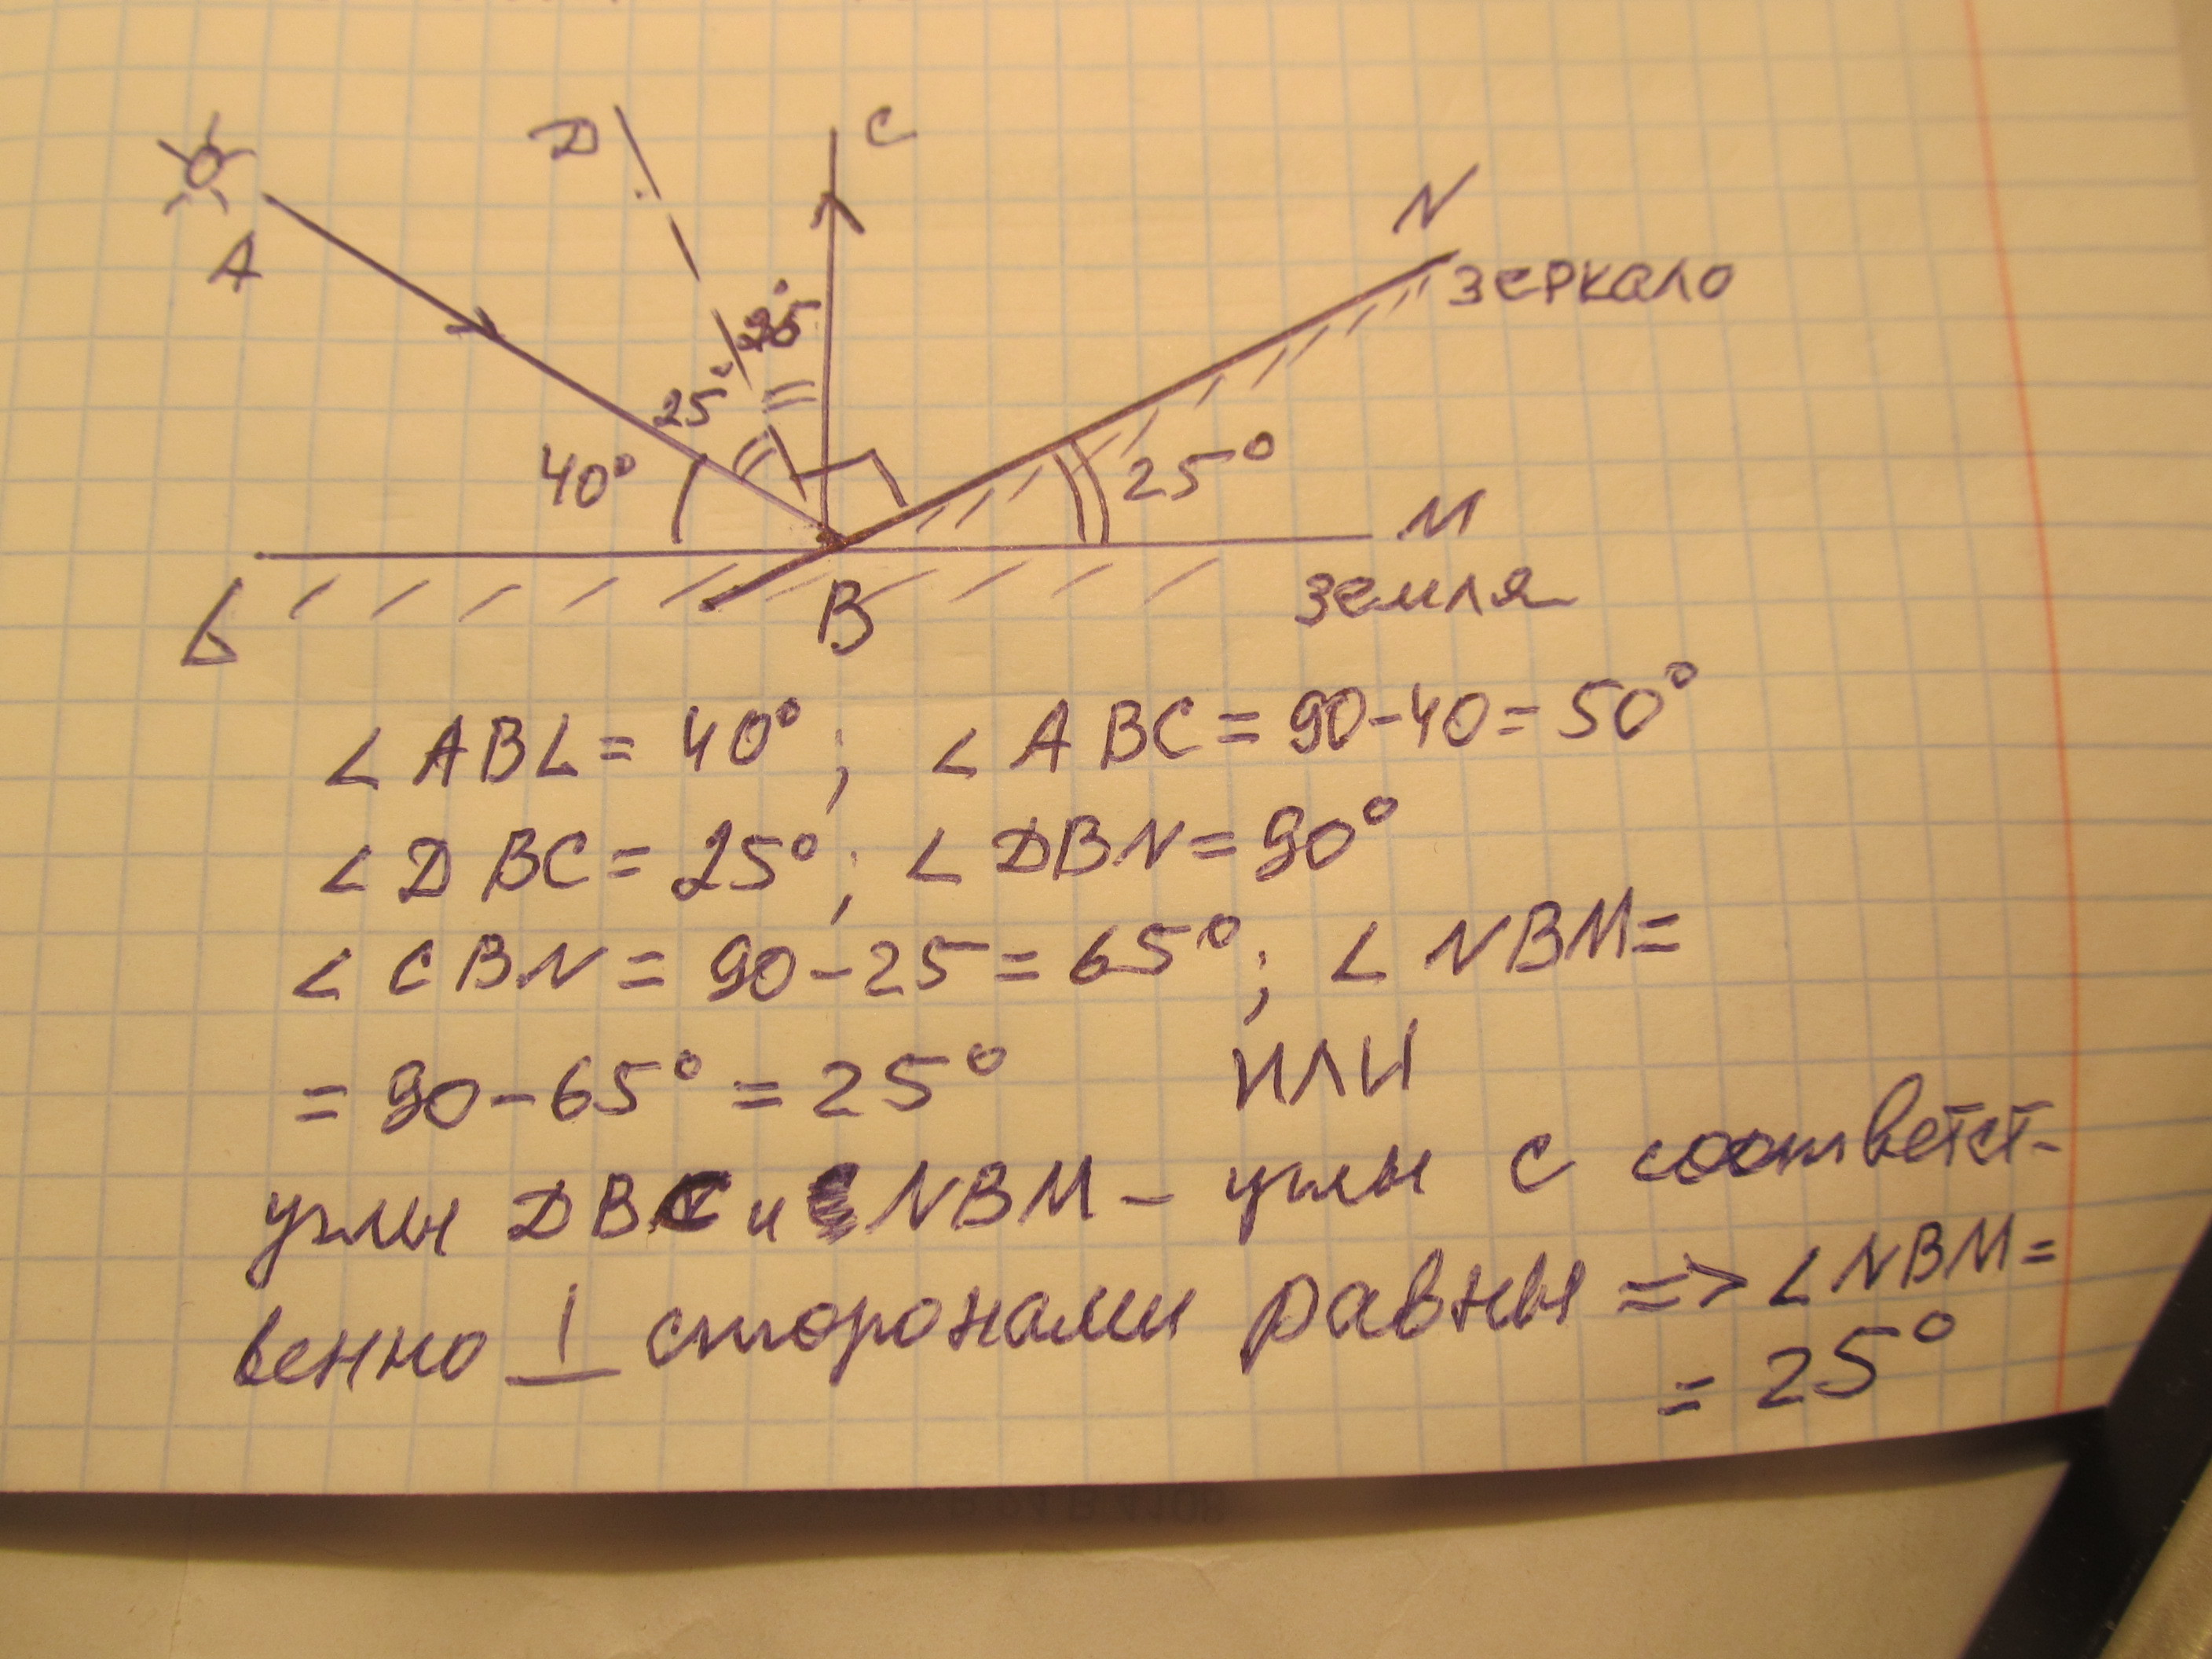 D
C
A
N
зеркало
25°
25°
40°
25°
M
L
B
земля
∠ABL = 40°; ∠ABC = 90-40 = 50°
∠DBC = 25°; ∠DBN = 90°
∠CBN = 90-25 = 65°; ∠NBM =
= 90-65° = 25° или
углы DBC и NBM - углы с соответст-
венно ⊥ сторонами равны => ∠NBM =
= 25°